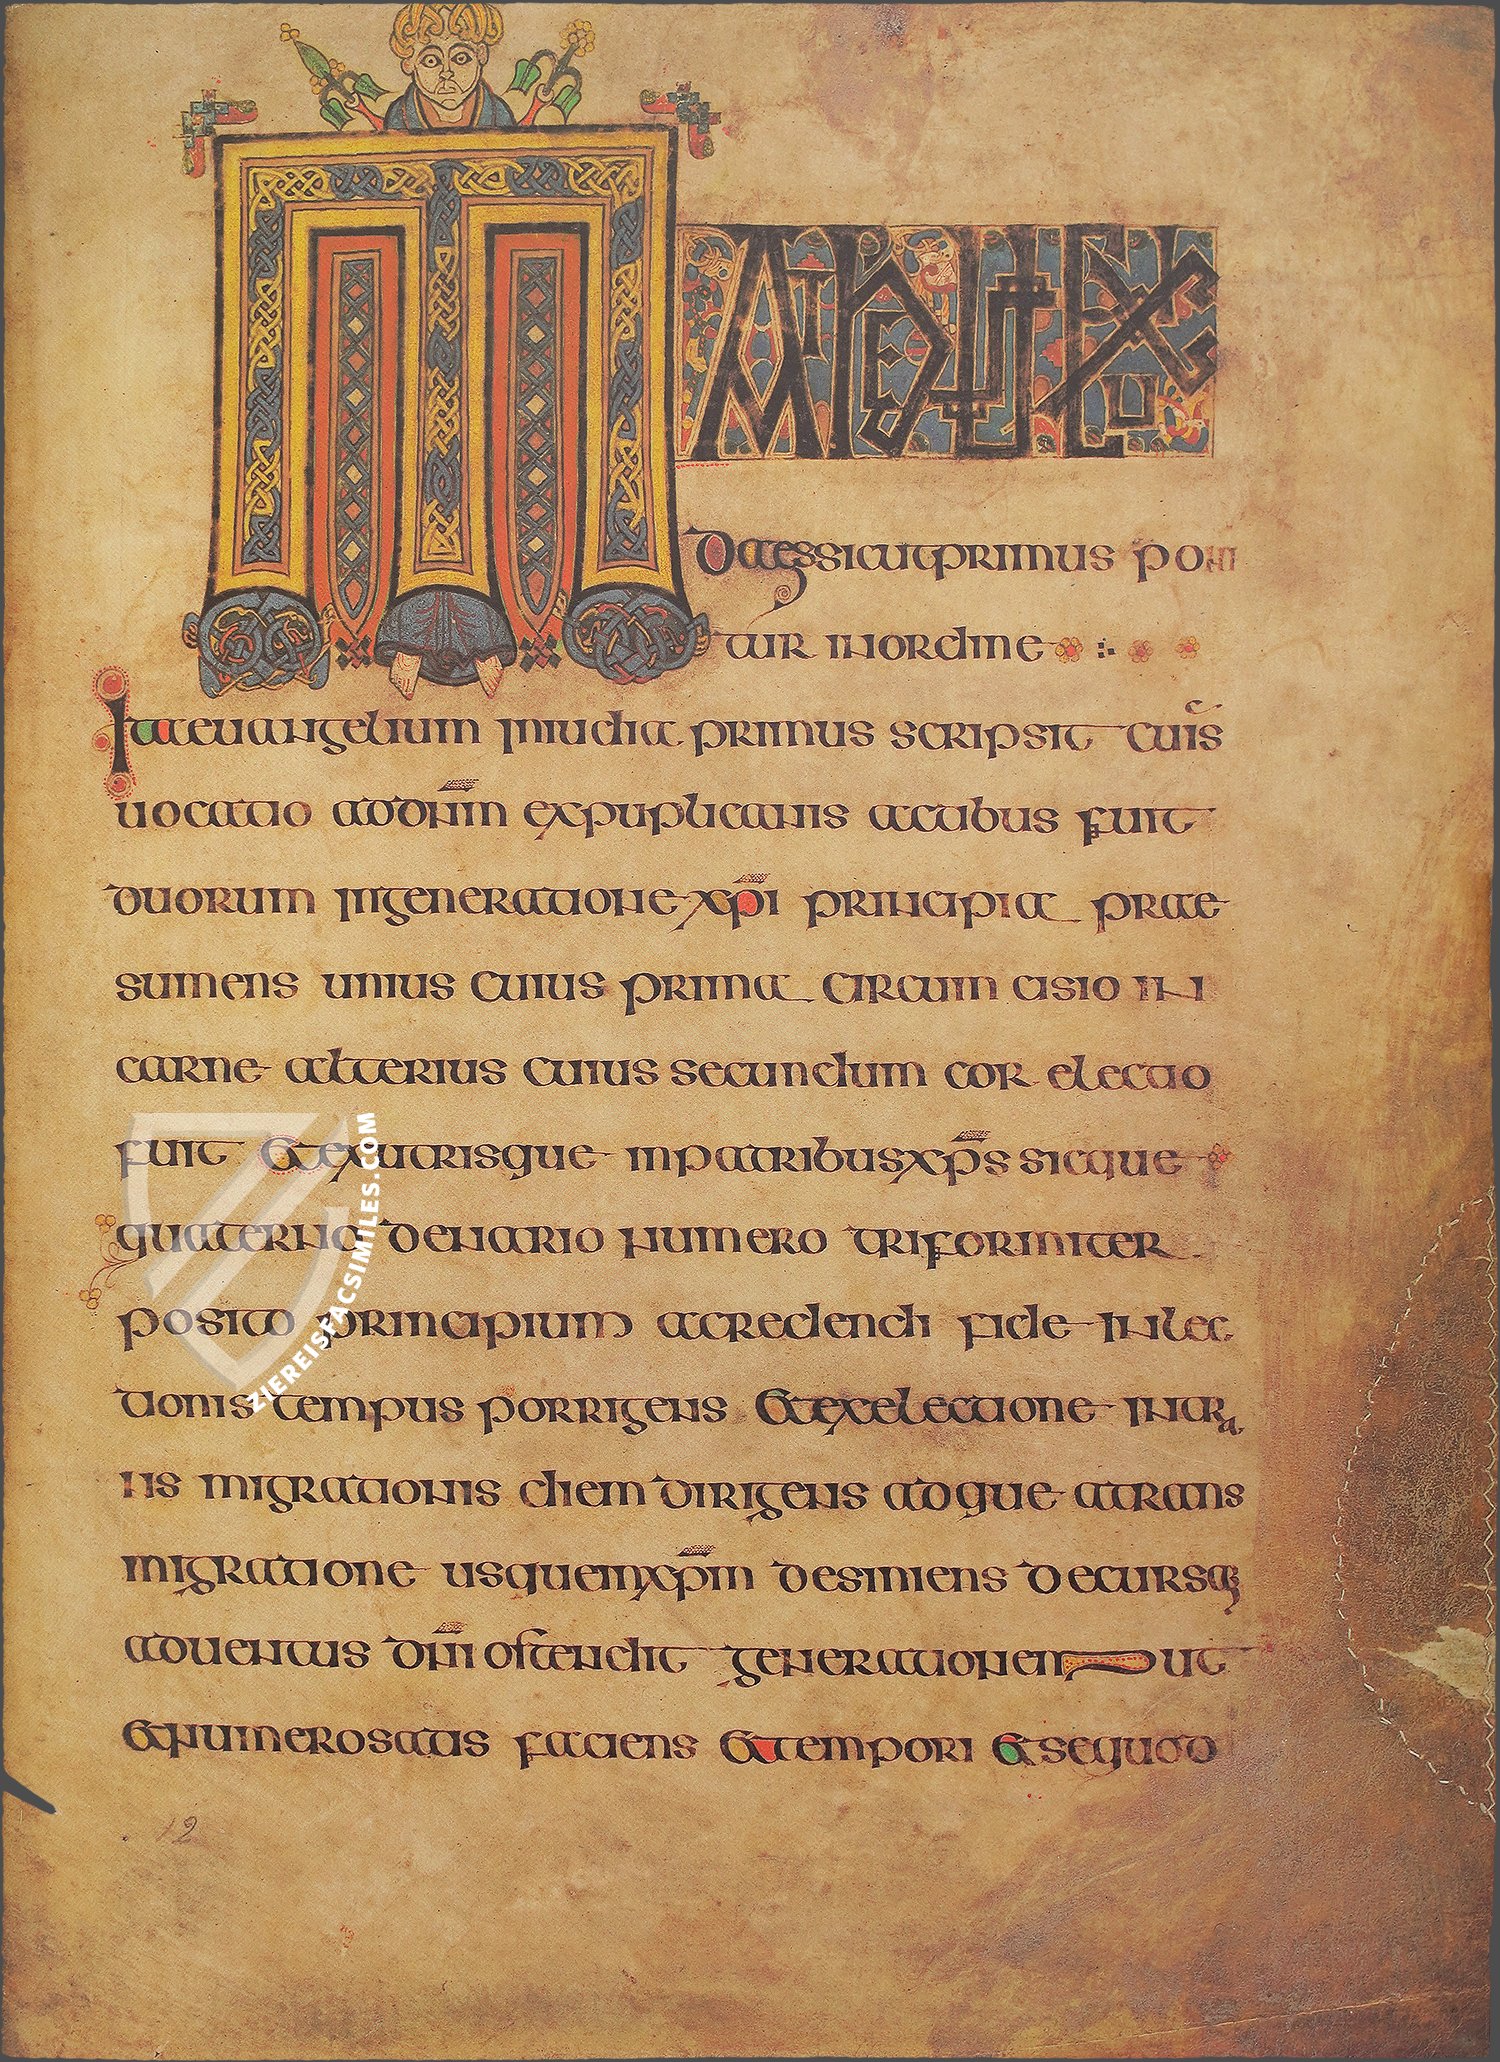 MATHEUS EX
IU
DAESSICUTPRIMUS PONI
TUR INORDINE
ITAEUANGELIUM INIUDIA PRIMUS SCRIPSIT CUIS
UOCATIO ADDNM EXPUPLICANIS ACTIBUS FUIT
DUORUM INGENERATIONE XPI PRINCIPIA PRAE
SUMENS UNIUS CUIUS PRIMA CIRCUM CISIO IN
CARNE ALTERIUS CUIUS SECUNDUM COR ELECTIO
FUIT ETEXUTRISQUE INPATRIBUSXPS SICQUE
QUATERNO DENARIO NUMERO TRIFORMITER
POSITO PRINCIPIUM ACREDENDI FIDE INELEC
TIONIS TEMPUS PORRIGENS ETEXELECTIONE INTRA
IIS MIGRATIONIS DIEM DIRIGENS ADQUE ATRANS
MIGRATIONE USQUEINXPM DESINIENS DECURSAM
ADUENTUS DNI OSTENDIT GENERATIONEM UT
ETNUMEROSATIS FACIENS ETTEMPORI ETSEQUOD
12
ZIEREISFACSIMILES.COM